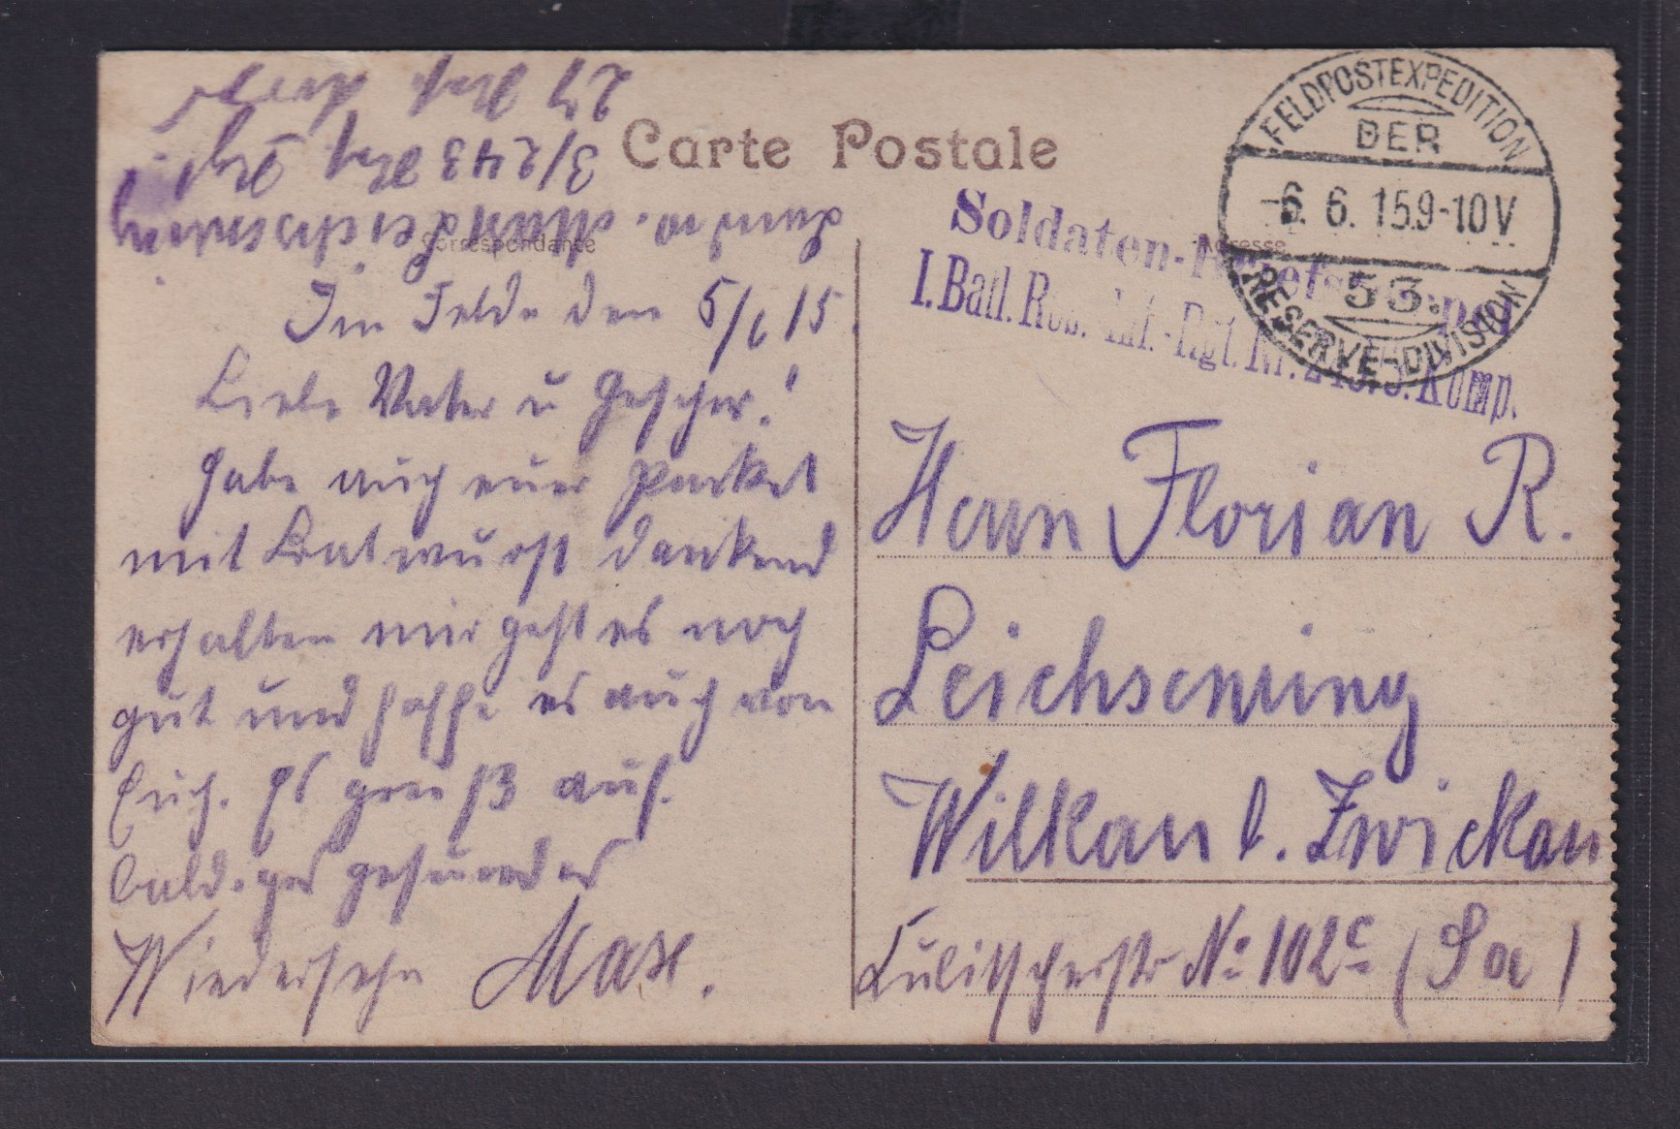 Landw. Max Leichsenring
3/243 Res. Rgt.
27 Res.
Carte Postale
Correspondance
Adresse
Im Felde den 5/6 15.
Liebe Vater u Geschw.!
Habe auch euer Packet
mit Bratwurst dankend
erhalten mir geht es noch
gut und hoffe es auch von
Euch. Es grüßt auf
baldiges gesundes
Wiedersehn Max.
FELDPOSTEXPEDITION
DER
-6. 6. 15 9-10V
53.
RESERVE-DIVISION
Soldaten-Briefstempel
I. Batl. Res.-Inf.-Rgt. Nr. 243, 3. Komp.
Herrn Florian R.
Leichsenring
Wilkau b. Zwickau
No 102c (Sa)